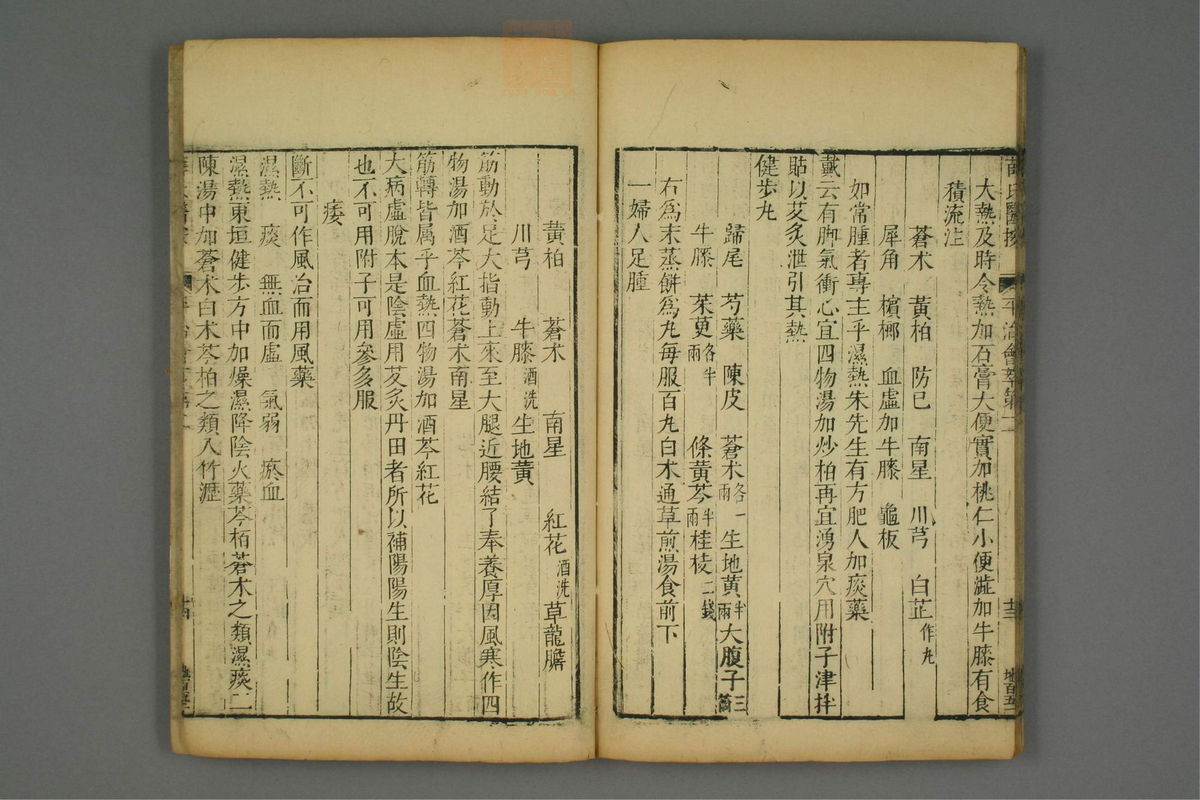 薛氏醫按 平治會萃卷二 十三 地百五一
大熱及時令熱加石膏大便實加桃仁小便澁加牛膝有食
積流注
蒼术 黃柏 防已 南星 川芎 白芷作丸
犀角 檳榔 血虛加牛膝 龜板
如常腫者專主乎濕熱朱先生有方肥人加痰藥
戴云有脚氣衝心宜四物湯加炒柏再宜湧泉穴用附子津拌
貼以艾炙泄引其熱
健步丸
歸尾 芍藥 陳皮 蒼术各一兩 生地黃半兩大腹子三箇
牛膝 茱萸各半兩 條黃芩半兩桂枝二錢
右爲末蒸餅爲丸每服百丸白术通草煎湯食前下
一婦人足腫
黃柏 蒼术 南星 紅花酒洗草龍膽
川芎 牛膝酒洗生地黃
筋動於足大指動上來至大腿近腰結了奉養厚因風寒作四
物湯加酒芩紅花蒼术南星
筋轉皆属乎血熱四物湯加酒芩紅花
大病虛脫本是陰虛用艾炙丹田者所以補陽陽生則陰生故
也不可用附子可用參多服
痿
斷不可作風治而用風藥
濕熱 痰 無血而虛 氣弱 瘀血
濕熱東垣健步方中加燥濕降陰火藥芩栢蒼术之類濕痰二
陳湯中加蒼术白术芩柏之類入竹瀝
十四